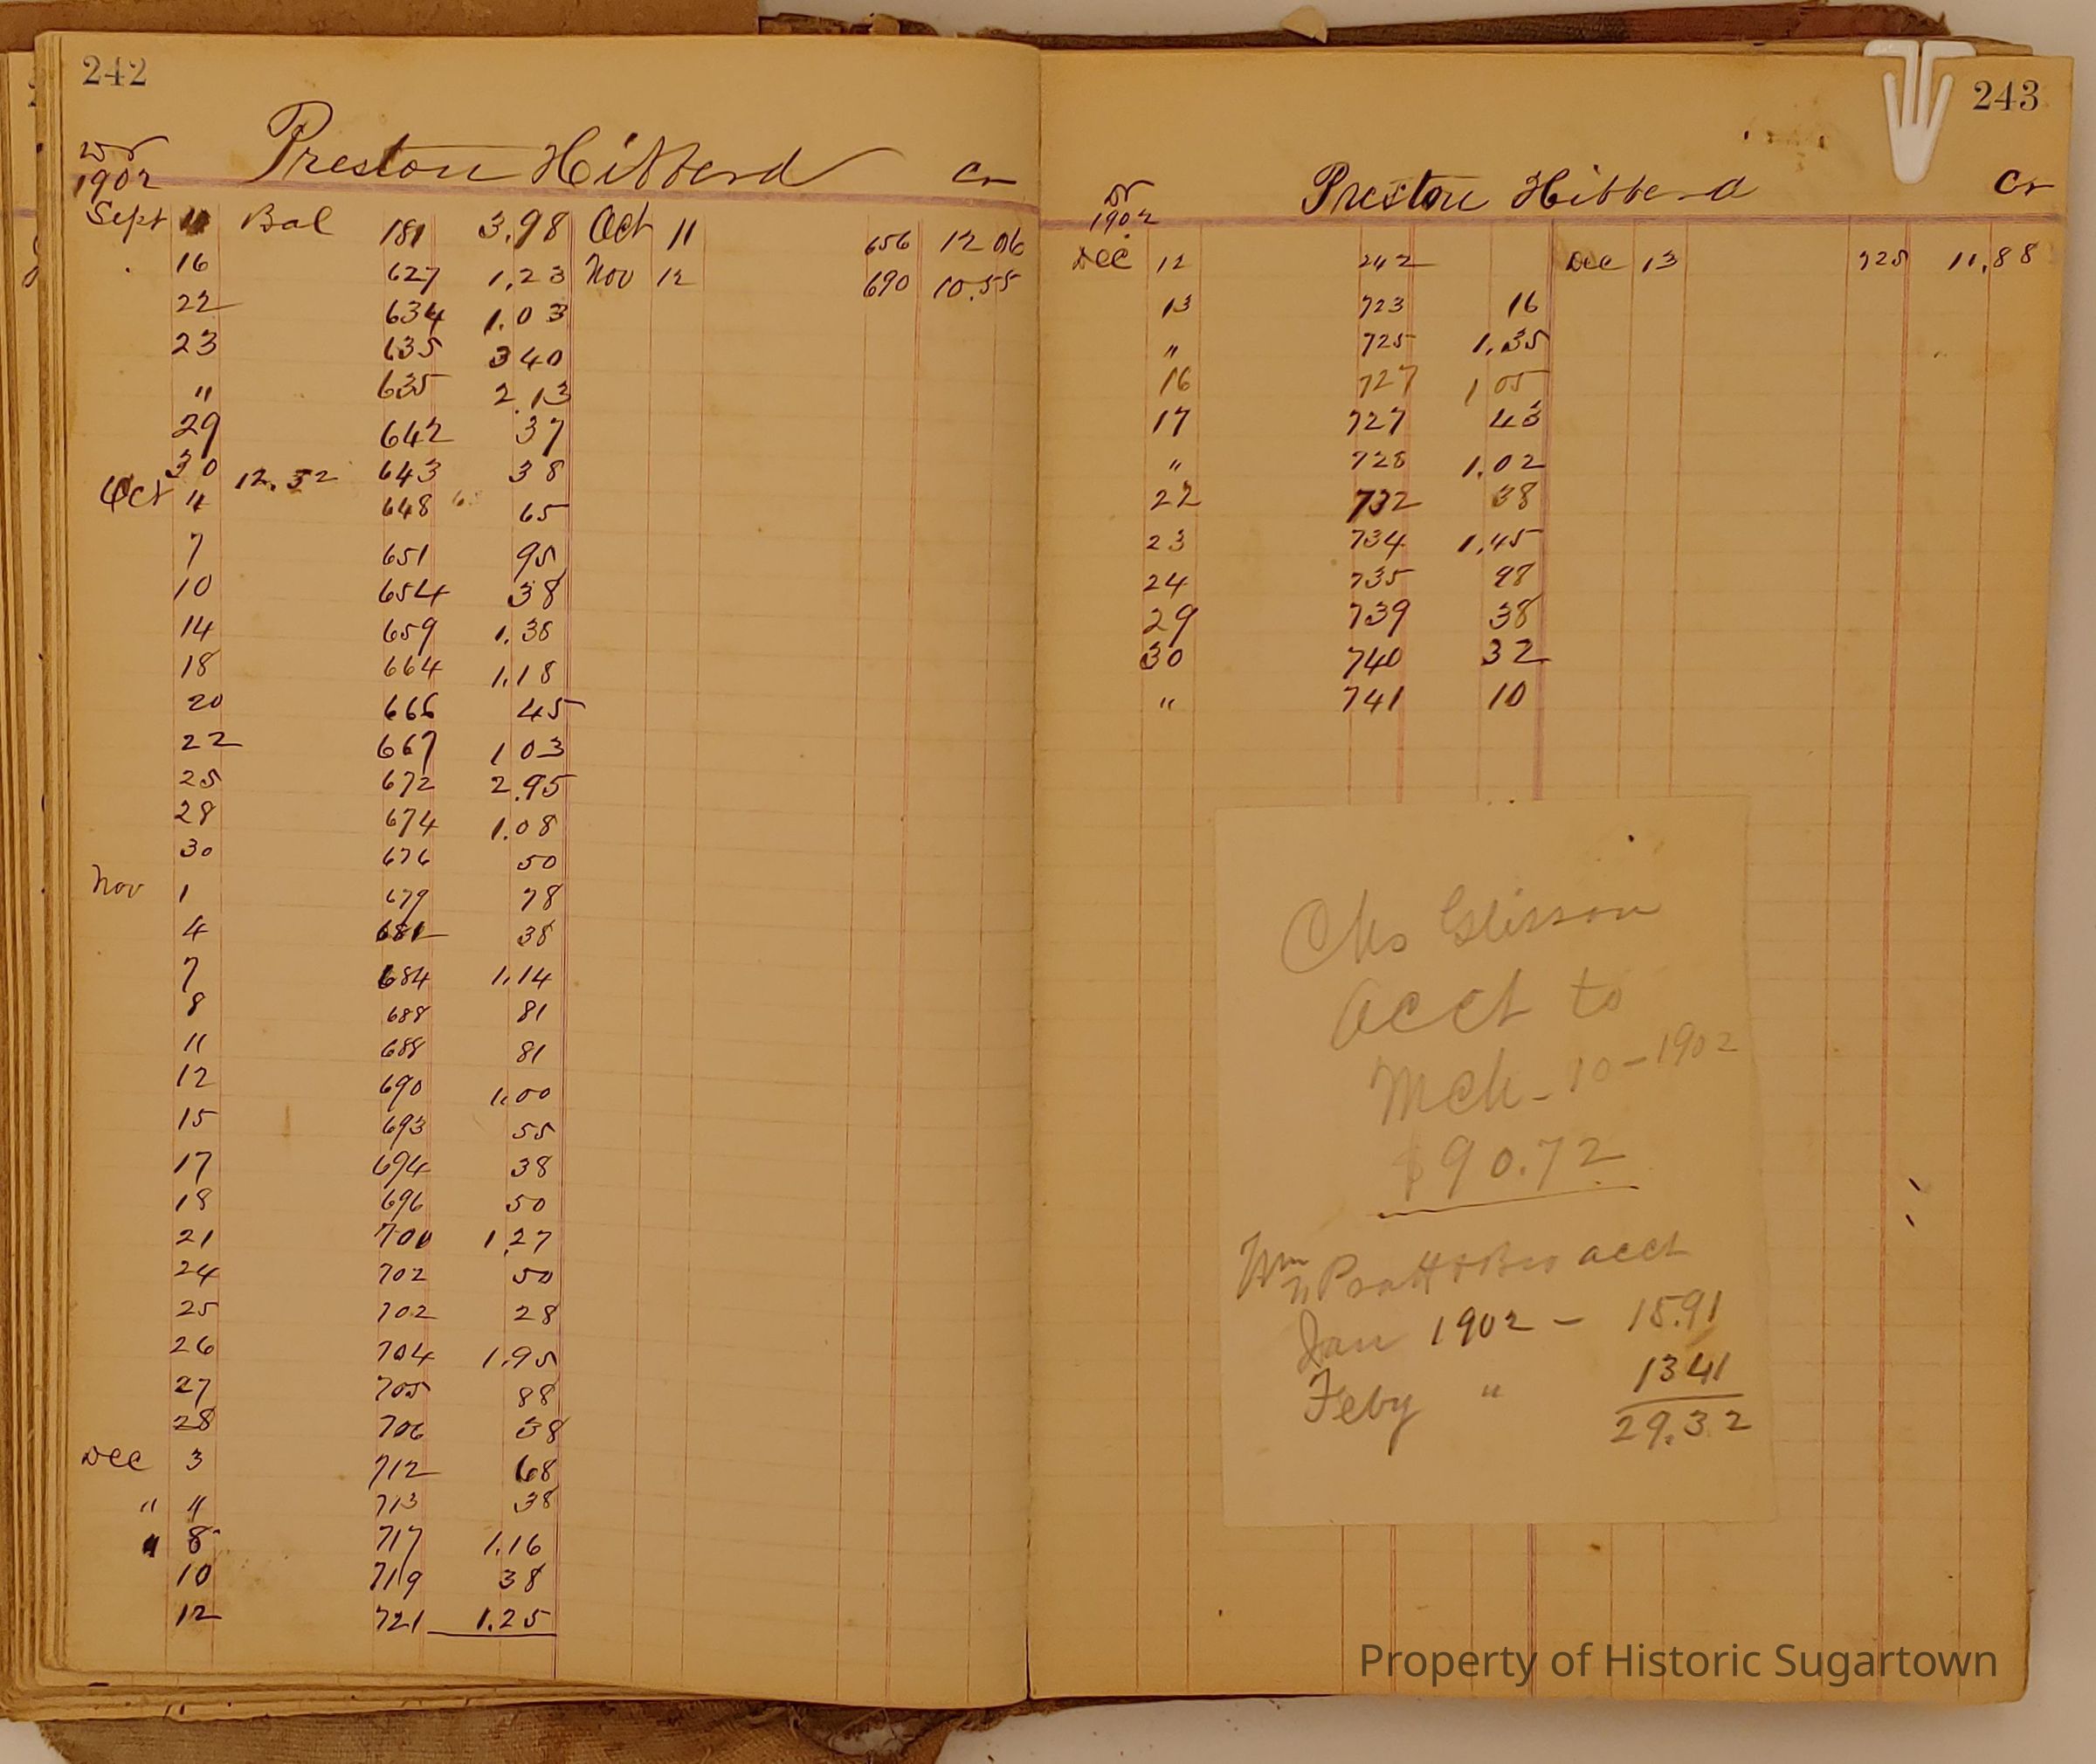 242
Preston Hibberd
Dr Cr
1902
Sept 11 Bal 181 3.98 Oct 11 656 12 06
16 627 1.23 Nov 12 690 10.55
22 634 1.03
23 635 3 40
" 635 2.13
29 642 37
30 12.52 643 38
Oct 4 648 65
7 651 95
10 654 38
14 659 1.38
18 664 1.18
20 666 45
22 667 1 03
25 672 2.95
28 674 1.08
30 676 50
Nov 1 679 78
4 681 38
7 684 1.14
8 688 81
11 688 81
12 690 1.00
15 693 55
17 694 38
18 696 50
21 700 1.27
24 702 50
25 702 28
26 704 1.95
27 705 88
28 706 38
Dec 3 712 68
" 4 713 38
" 8 717 1.16
10 719 38
12 721 1.25
243
Dr Preston Hibberd Cr
1902
Dec 12 242 Dec 13 725 11.88
13 723 16
" 725 1.35
16 727 1 05
17 727 43
" 728 1.02
22 732 38
23 734 1.45
24 735 98
29 739 38
30 740 32
" 741 10
Chs Glisson
acct to
Mch - 10 - 1902
$90.72
Wm Pratt & Bro acct
Jan 1902 - 15.91
Feby " 13 41
29.32
Property of Historic Sugartown